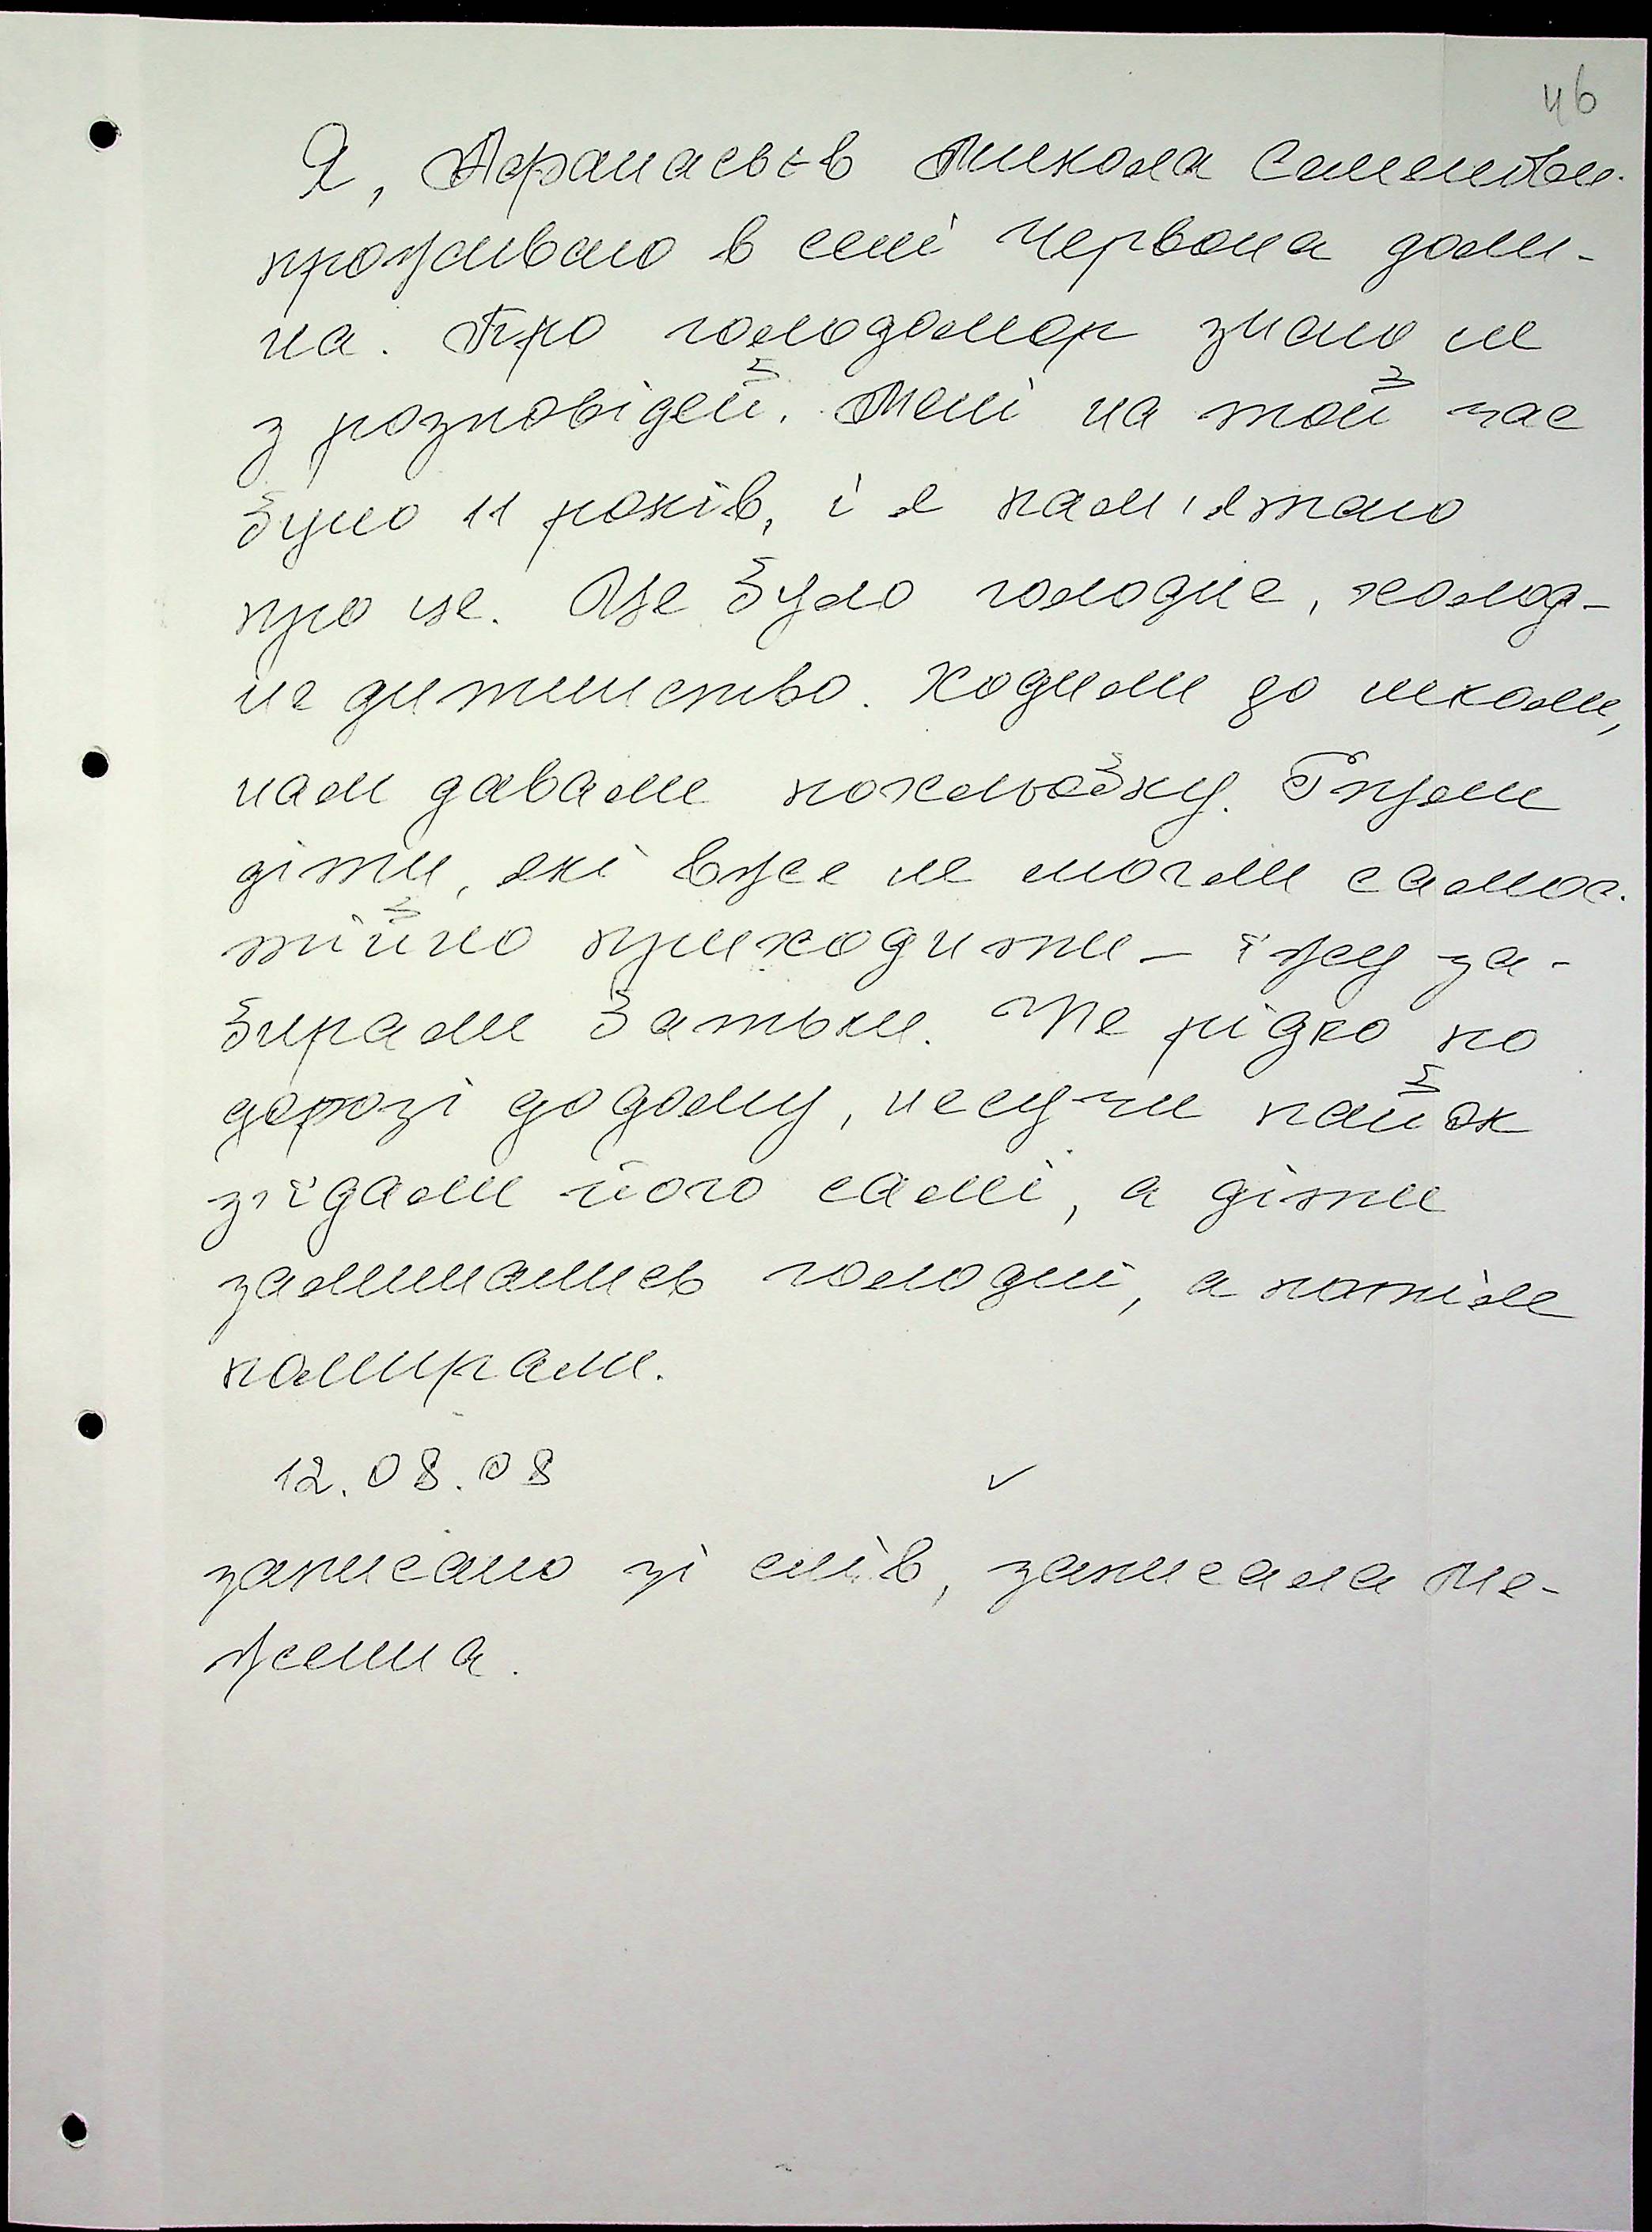 46
Я, Афанасьєв Микола Семенович
проживаю в селі Червона доли-
на. Про голодомор знаю не
з розповідей. Мені на той час
було 11 років, і я пам'ятаю
про це. Це було голодне, холод-
не дитинство. Ходили до школи,
нам давали похльобку. Трупи
діти, які вже не могли самос-
тійно приходити – їжу за-
бирали батьки. Не рідко по
дорозі додому, несучи пайок
з'їдали його самі, а діти
залишались голодні, а потім
помирали.
12.08.08 ✓
записано зі слів, записала Ме-
ження.